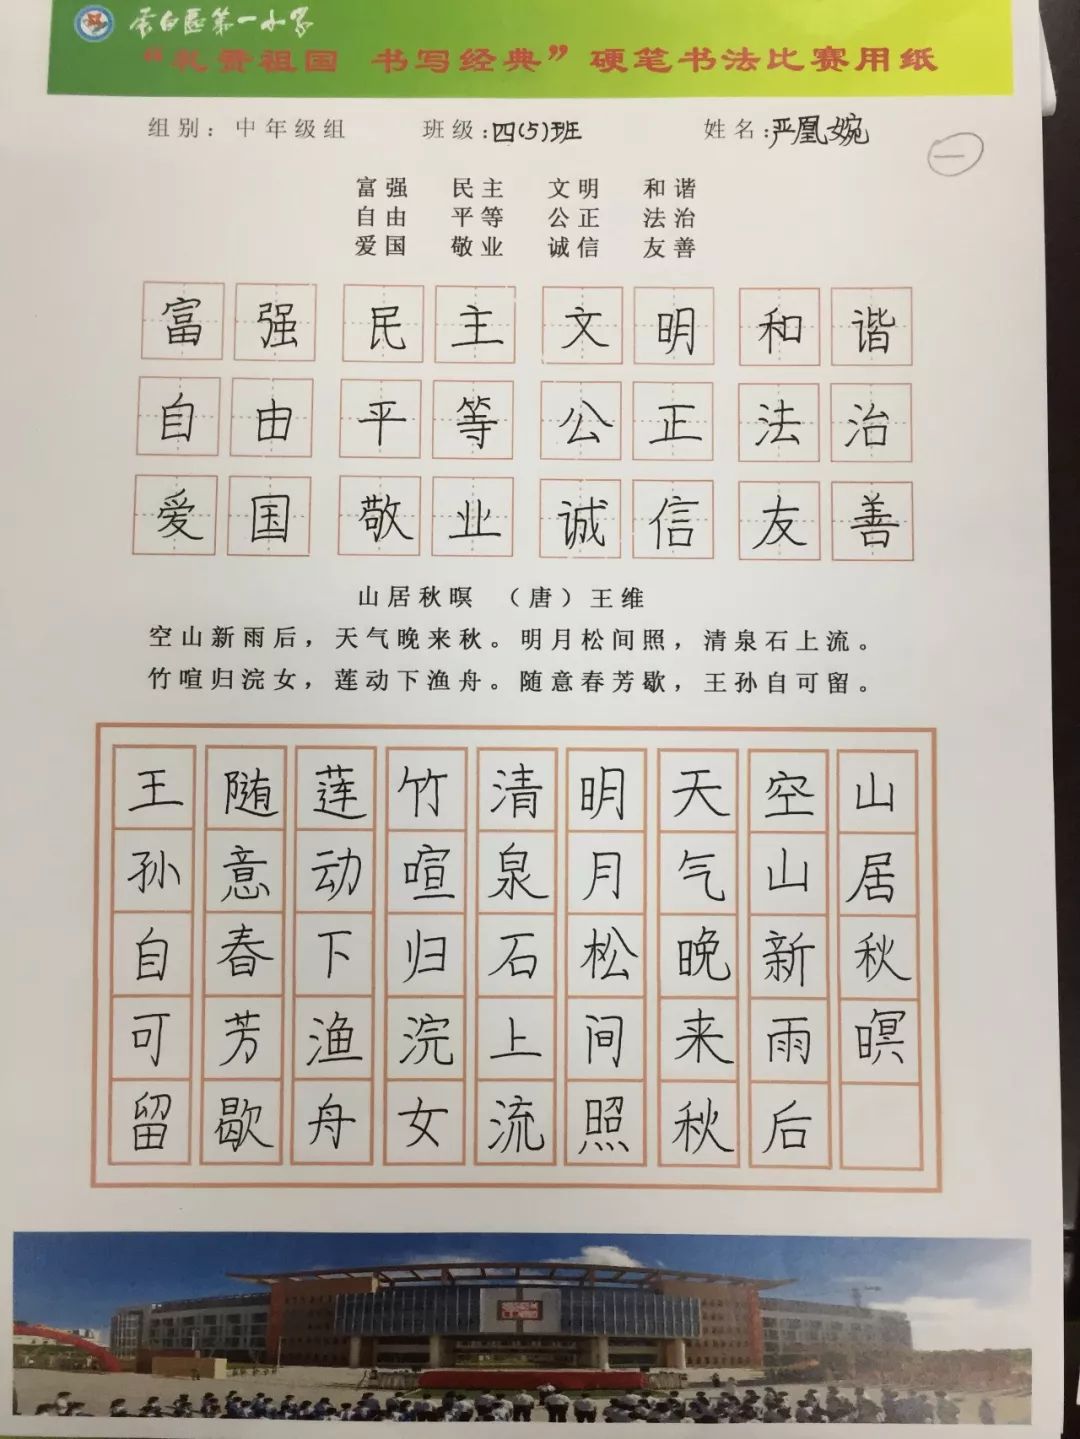 白区第一小学
“礼赞祖国 书写经典”硬笔书法比赛用纸
组别：中年级组 班级：四(5)班 姓名：严凰婉
一
富强 民主 文明 和谐
自由 平等 公正 法治
爱国 敬业 诚信 友善
富强民主文明和谐
自由平等公正法治
爱国敬业诚信友善
山居秋暝 （唐）王维
空山新雨后，天气晚来秋。明月松间照，清泉石上流。
竹喧归浣女，莲动下渔舟。随意春芳歇，王孙自可留。
山居秋暝
空山新雨后
天气晚来秋
明月松间照
清泉石上流
竹喧归浣女
莲动下渔舟
随意春芳歇
王孙自可留